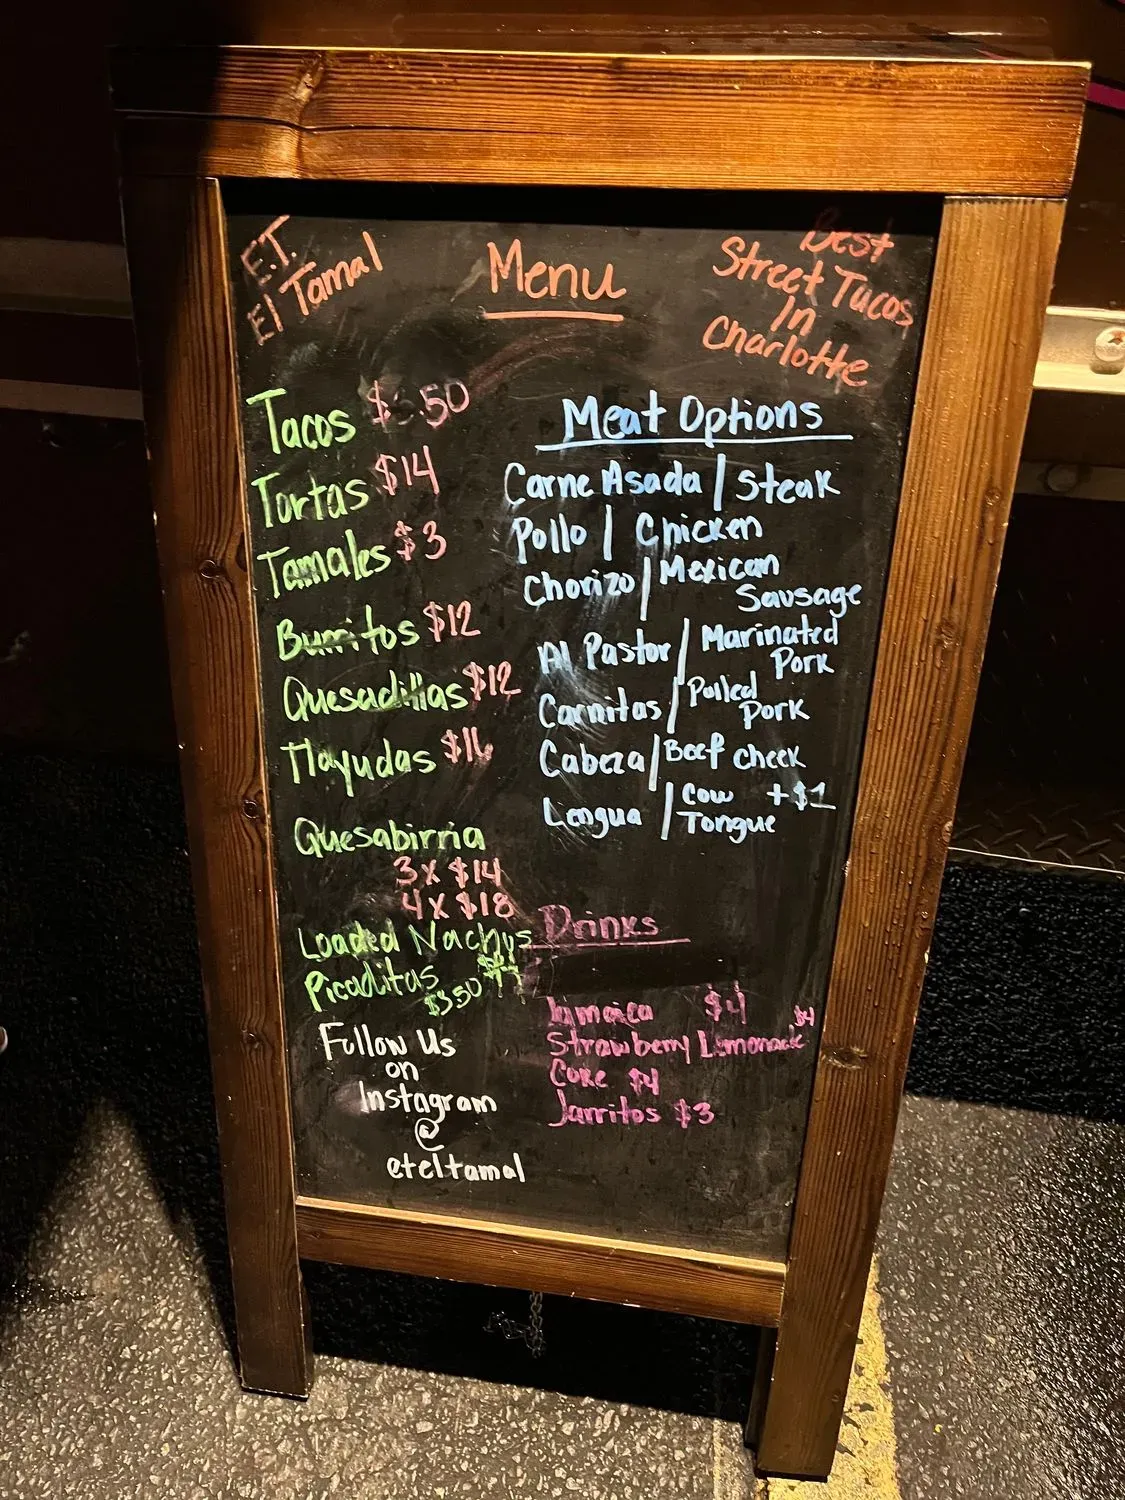 E.T.
El Tamal
Menu
Best
Street Tacos
In
Charlotte
Tacos
Tortas $14
Tamales $3
Burritos $12
Quesadillas $12
Tlayudas
Quesabirria
3 x $14
4 x $18
Loaded Nachys
Picaditas
$3.50
Follow Us
on
Instagram
@
eteltamal
Meat Options
Carne Asada | Steak
Pollo | Chicken
Chorizo | Mexican
Sausage
Al Pastor | Marinated
Pork
Carnitas | Pulled
Pork
Cabeza | Beef cheek
Lengua | Cow +$1
Tongue
Drinks
Jamaica $4
Strawberry Lemonade $4
Coke $4
Jarritos $3